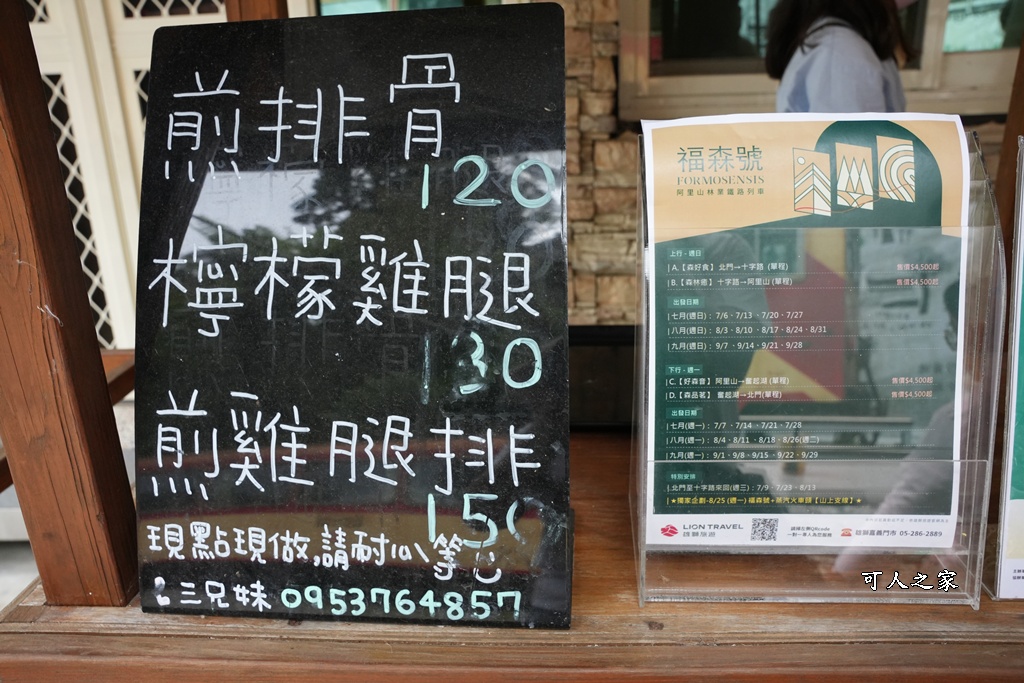 煎排骨
120
檸檬雞腿
130
煎雞腿排
150
現點現做,請耐心等心
三兄妹 0953764857
福森號
FORMOSENSIS
阿里山林業鐵路列車
上行 - 週日
A.【森好食】 北門→十字路 (單程) 售價$4,500起
B.【森林癒】 十字路→阿里山 (單程) 售價$4,500起
出發日期
七月(週日): 7/6、7/13 、7/20、7/27
八月(週日): 8/3、8/10、8/17、8/24、8/31
九月(週日): 9/7 、9/14、9/21、9/28
下行 - 週一
C.【好森音】 阿里山→奮起湖 (單程) 售價$4,500起
D.【森品茗】 奮起湖→北門(單程) 售價$4,500起
出發日期
七月(週一): 7/7、7/14 、7/21、7/28
八月(週一): 8/4、8/11 、8/18、8/26(週二)
九月(週一): 9/1、9/8、9/15、9/22、9/29
特別安排
北門至十字路來回(週三): 7/9、7/23、8/13
★獨家企劃-8/25 (週一) 福森號+蒸汽火車頭【山上支線】★
LION TRAVEL
雄獅旅遊
雄獅嘉義門市 05-286-2889
可人之家